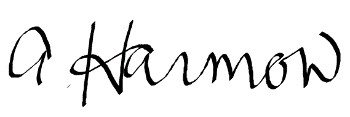 a Harmow